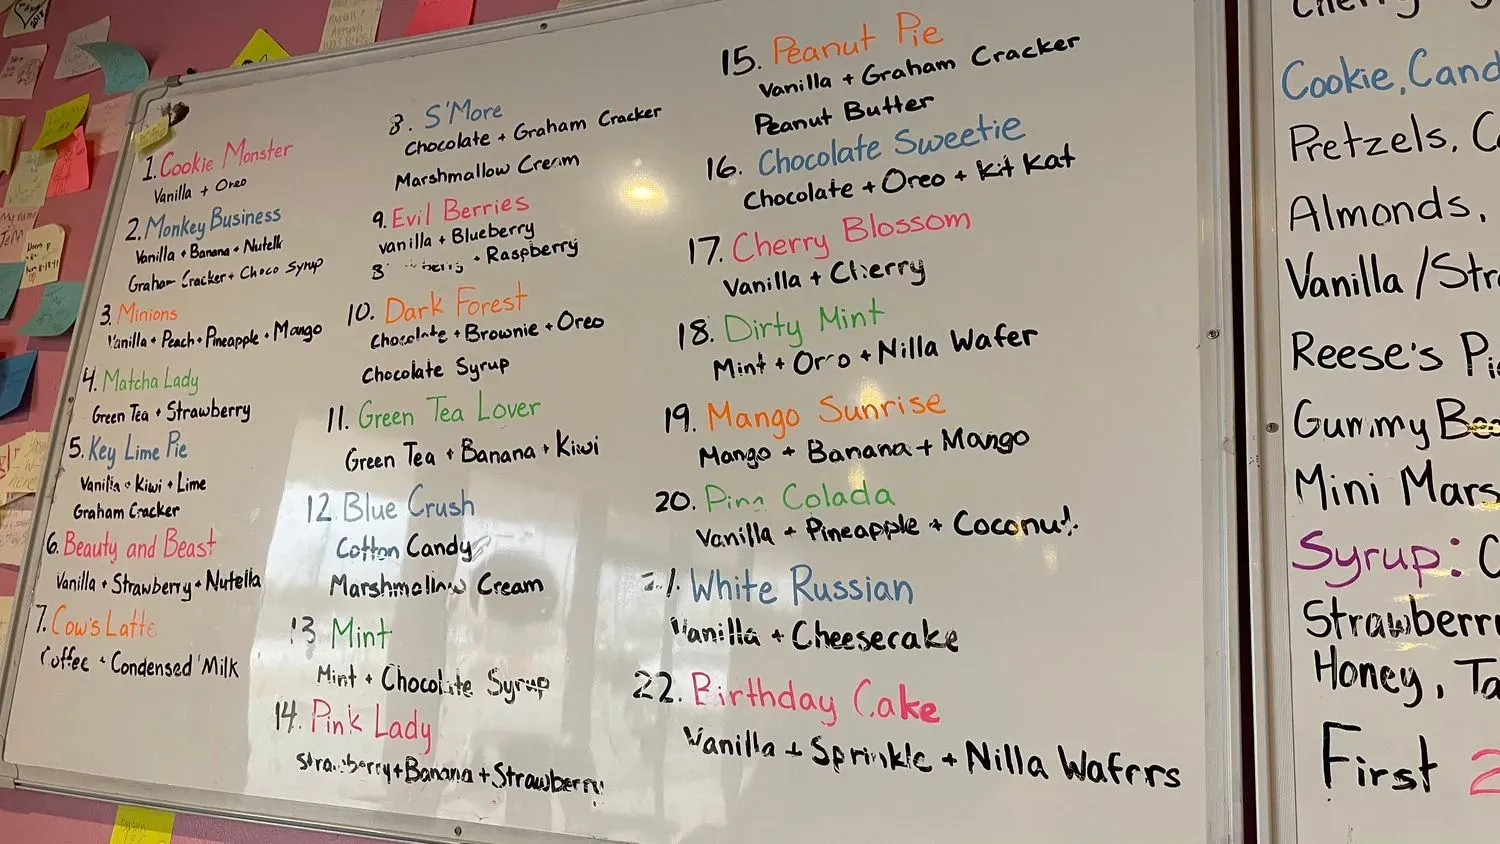 1. Cookie Monster
Vanilla + Oreo
2. Monkey Business
Vanilla + Banana + Nutella
Graham Cracker + Choco Syrup
3. Minions
Vanilla + Peach + Pineapple + Mango
4. Matcha Lady
Green Tea + Strawberry
5. Key Lime Pie
Vanilla + Kiwi + Lime
Graham Cracker
6. Beauty and Beast
Vanilla + Strawberry + Nutella
7. Cow's Latte
Coffee + Condensed Milk
8. S'More
Chocolate + Graham Cracker
Marshmallow Cream
9. Evil Berries
Vanilla + Blueberry
+ Raspberry
10. Dark Forest
Chocolate + Brownie + Oreo
Chocolate Syrup
11. Green Tea Lover
Green Tea + Banana + Kiwi
12 Blue Crush
Cotton Candy
Marshmallow Cream
13 Mint
Mint + Chocolate Syrup
14. Pink Lady
Strawberry + Banana + Strawberry
15. Peanut Pie
Vanilla + Graham Cracker
Peanut Butter
16. Chocolate Sweetie
Chocolate + Oreo + Kit Kat
17. Cherry Blossom
Vanilla + Cherry
18. Dirty Mint
Mint + Oreo + Nilla Wafer
19. Mango Sunrise
Mango + Banana + Mango
20. Pina Colada
Vanilla + Pineapple + Coconut
21. White Russian
Vanilla + Cheesecake
22. Birthday Cake
Vanilla + Sprinkle + Nilla Wafers
Cherry
Cookie, Cand
Pretzels, C
Almonds,
Vanilla / Str
Reese's Pi
Gummy Be
Mini Mars
Syrup: C
Strawberr
Honey, Ta
First 2